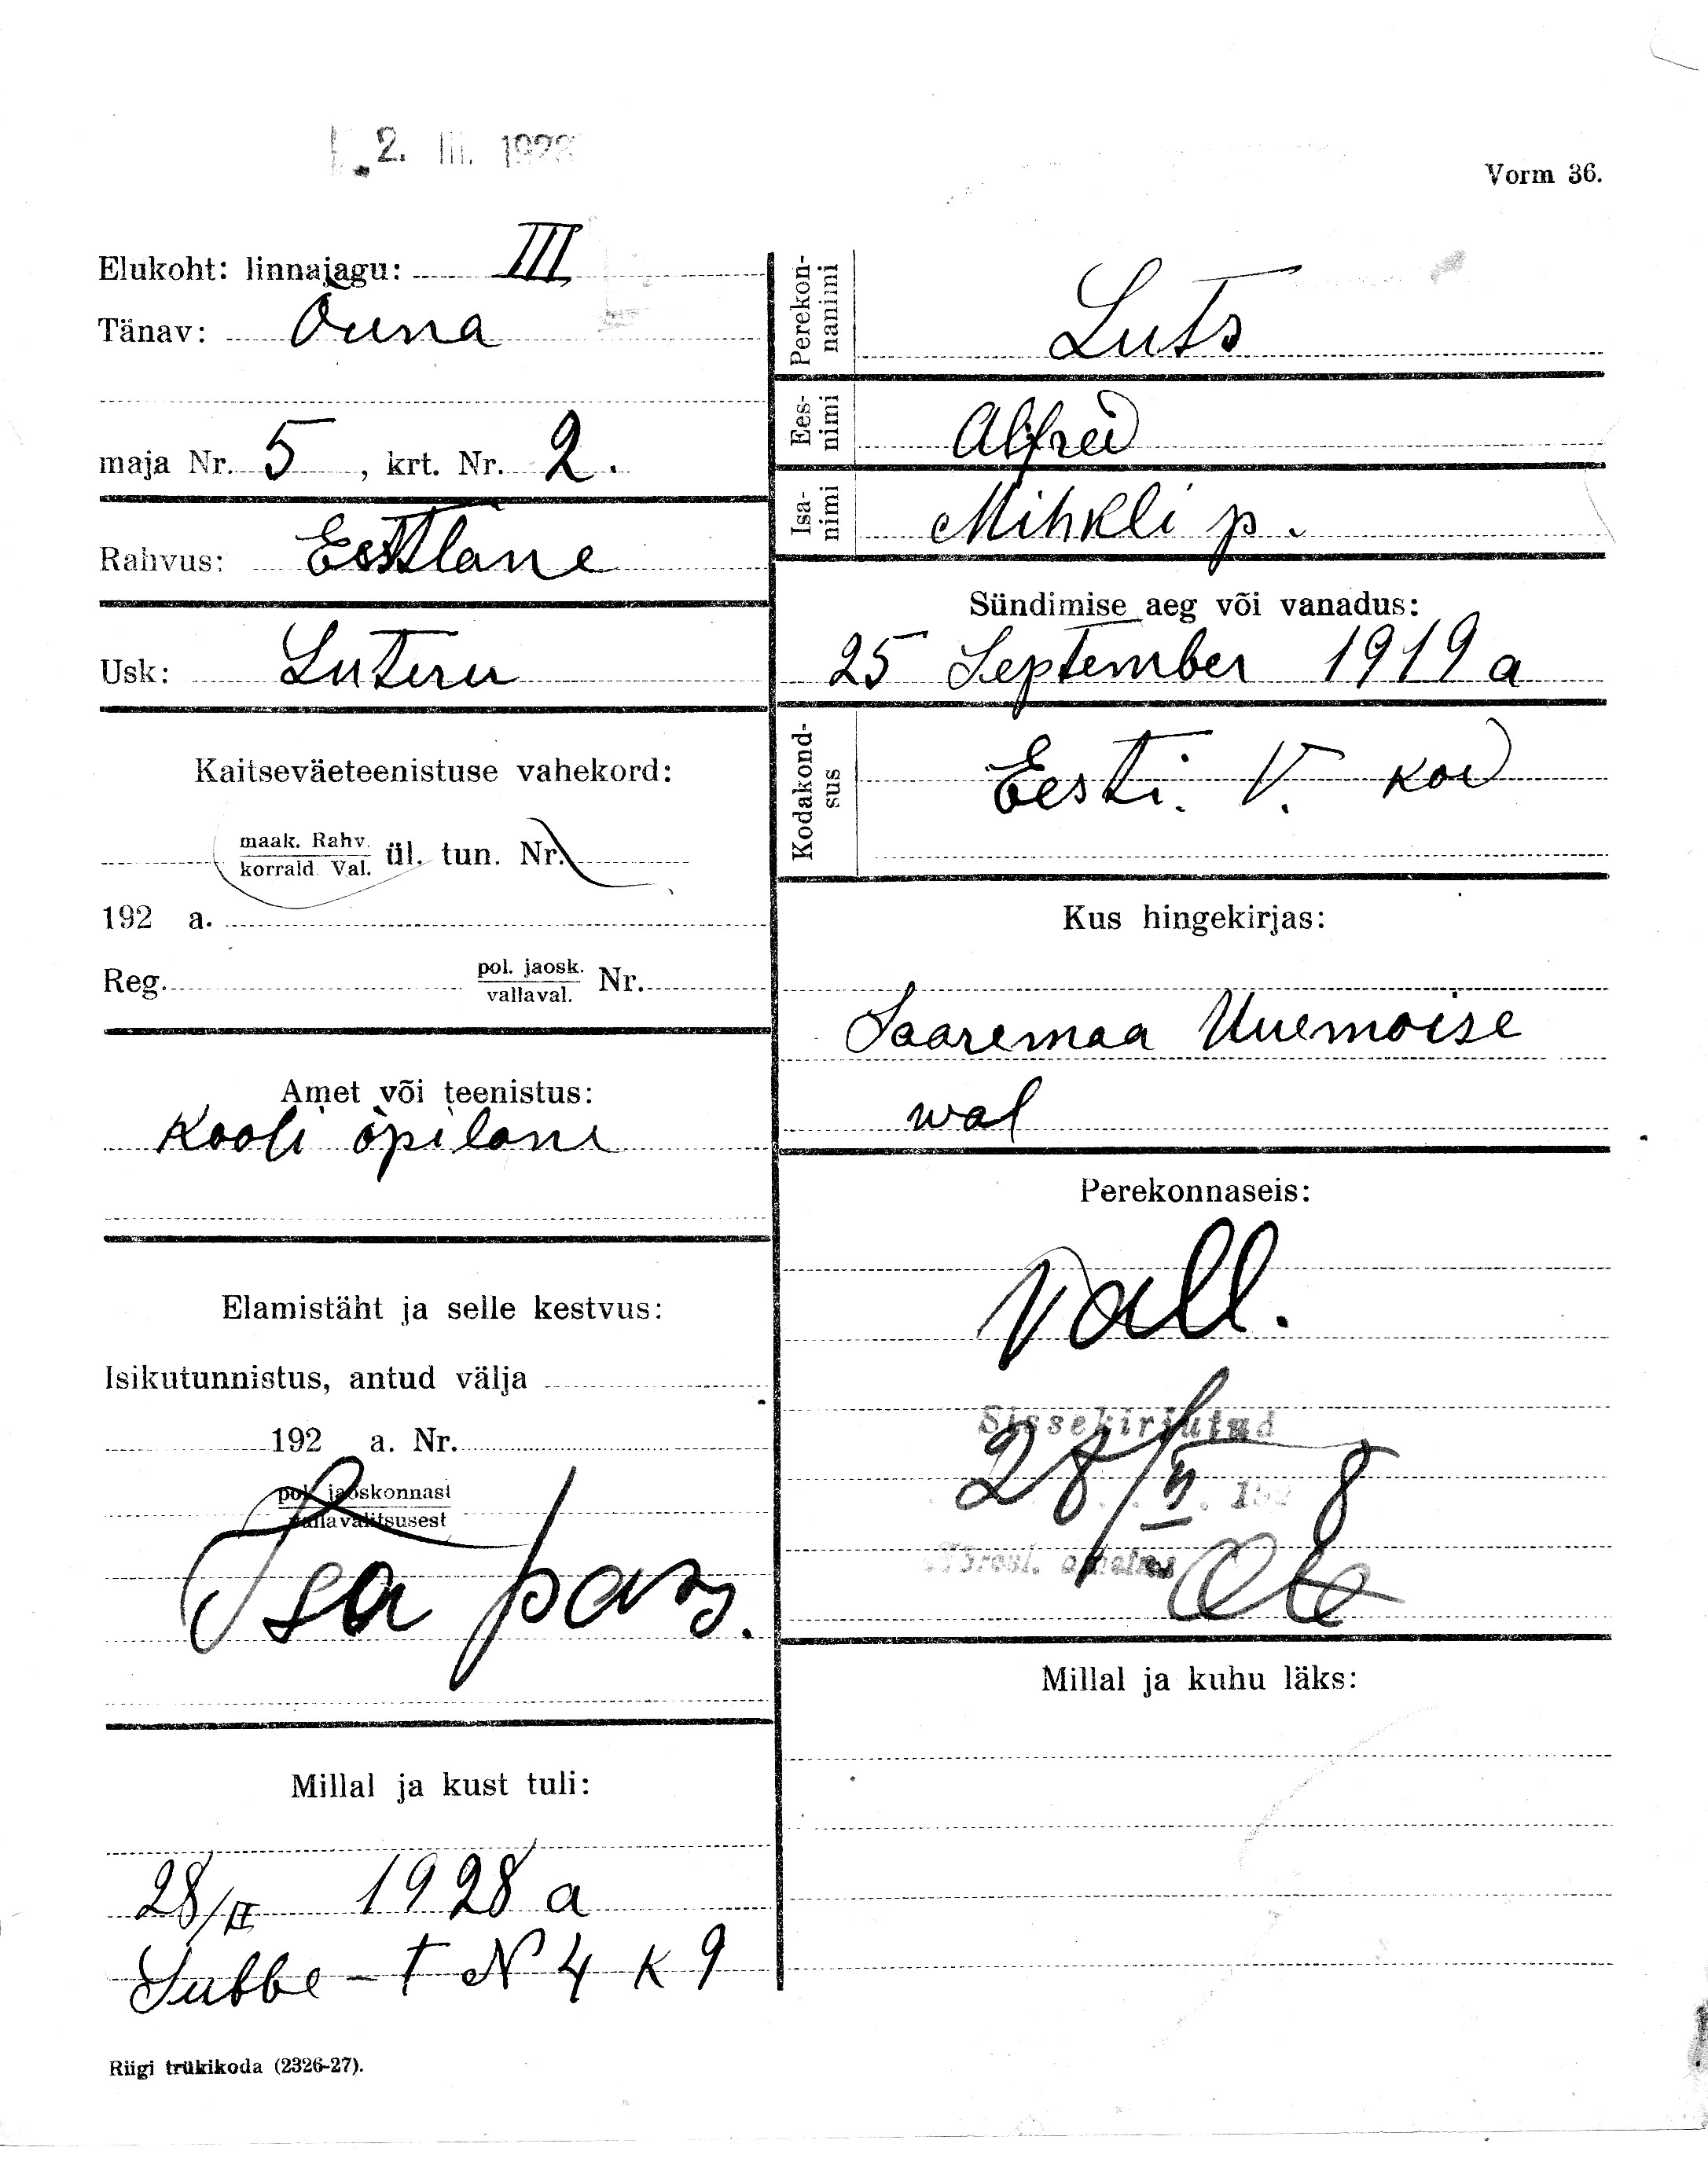 2. III. 1928
Vorm 36.
Elukoht: linnajagu: III
Tänav: Õuna
maja Nr. 5, krt. Nr. 2.
Rahvus: Eestlane
Usk: Luteru
Kaitseväeteenistuse vahekord:
maak. Rahv.
korrald. Val. ül. tun. Nr.
192 a.
Reg. pol. jaosk.
vallaval. Nr.
Amet või teenistus:
Kooli õpilane
Elamistäht ja selle kestvus:
Isikutunnistus, antud välja
192 a. Nr.
pol. jaoskonnast
vallavalitsusest
Isa pass.
Millal ja kust tuli:
28/II 1928 a
Subbe - t N 4 K 9
Riigi trükikoda (2326-27).
Perekon-
nanimi Luts
Ees-
nimi Alfred
Isa-
nimi Mihkli p.
Sündimise aeg või vanadus:
25 September 1919 a
Kodakond-
sus Eesti. V. kod
Kus hingekirjas:
Saaremaa Uuemoise
wal
Perekonnaseis:
vall.
Sissekirjutud
28/II. 1928
Millal ja kuhu läks: